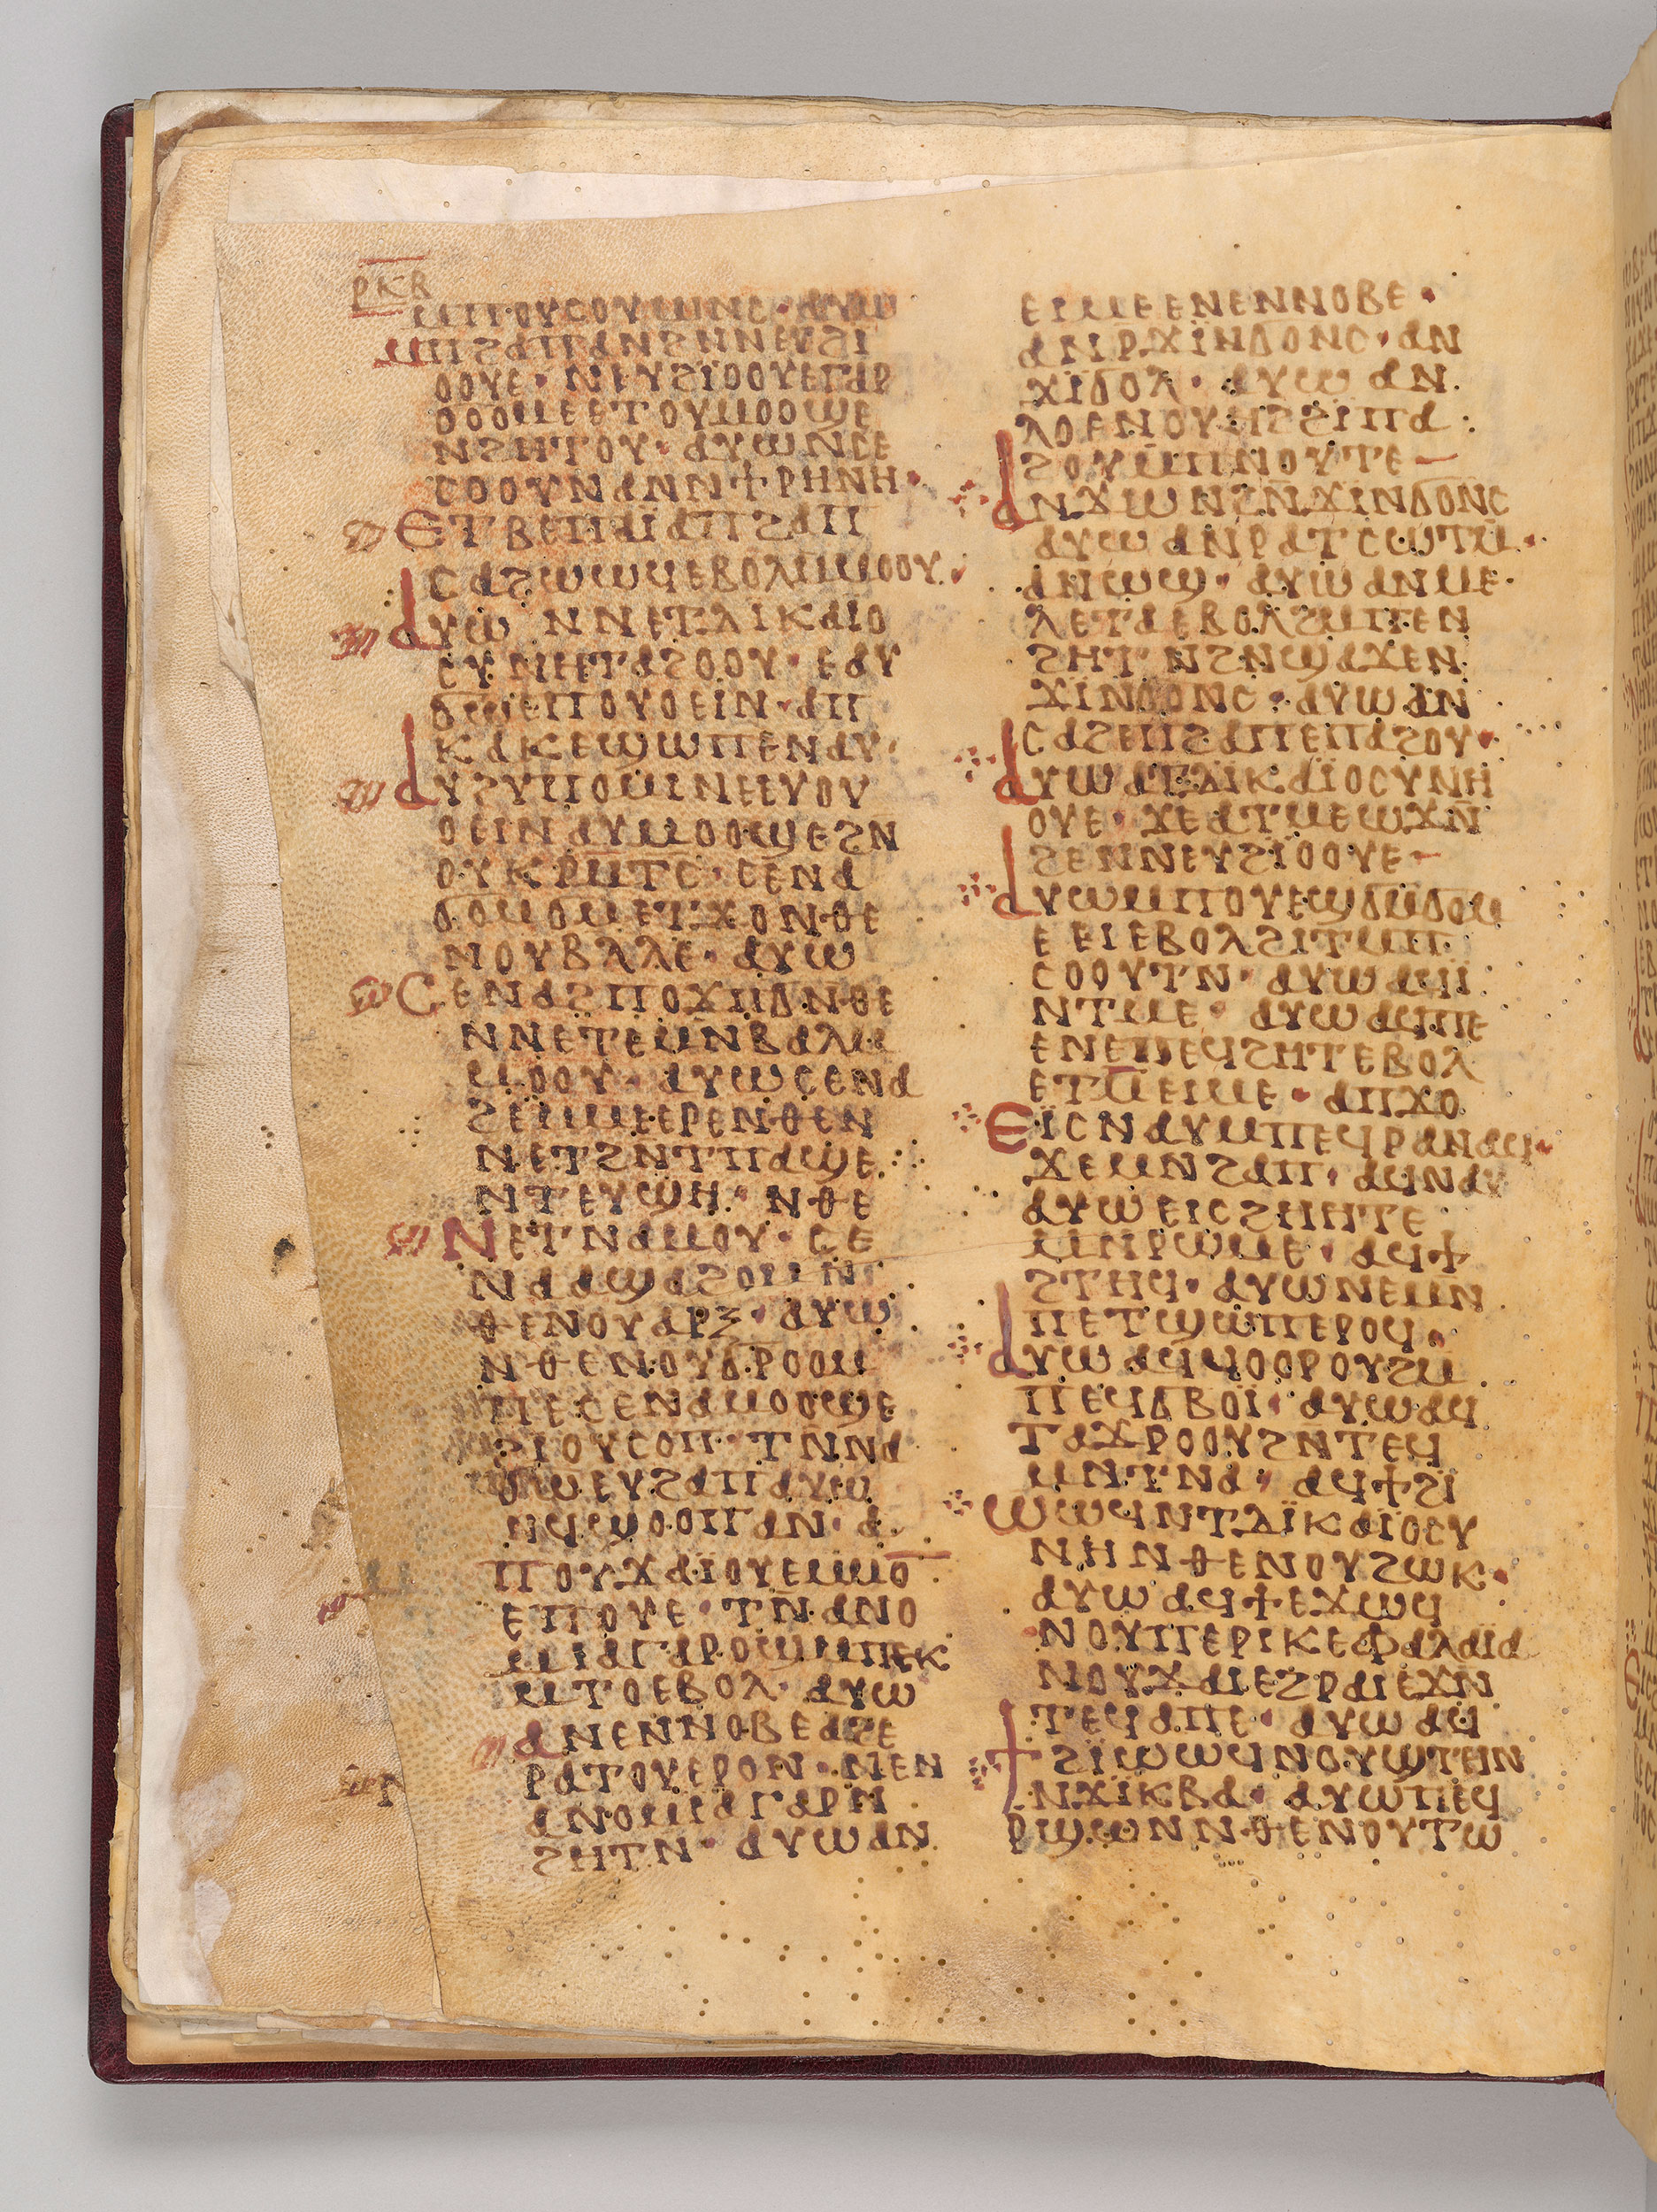 ⲣⲕⲃ
ⲙⲡⲟⲩⲥⲟⲩⲱⲛⲥ· ⲁⲩⲱ
ⲙⲛϩⲁⲡ ϩⲛⲛⲉⲩϩⲓ
ⲟⲟⲩⲉ· ⲛⲉⲩϩⲓⲟⲟⲩⲉⲅⲁⲣ
ϭⲟⲟⲙⲉⲉⲧⲟⲩⲙⲟⲟϣⲉ
ⲛϩⲏⲧⲟⲩ· ⲁⲩⲱⲛⲥⲉ
ⲥⲟⲟⲩⲛⲁⲛⲛϯⲣⲏⲛⲏ·
ⲉⲧⲃⲉⲡⲁⲓⲁⲡϩⲁⲡ
ⲥⲁϩⲱⲱϥⲉⲃⲟⲗⲙⲙⲟⲟⲩ·
ⲁⲩⲱ ⲛⲛⲉⲧⲇⲓⲕⲁⲓⲟ
ⲥⲩⲛⲏⲧⲁϩⲟⲟⲩ· ⲉⲁⲩ
ϭⲱⲉⲡⲟⲩⲟⲉⲓⲛ· ⲁⲡ
ⲕⲁⲕⲉϣⲱⲡⲉⲛⲁⲩ·
ⲁⲩϩⲩⲡⲟⲙⲓⲛⲉⲉⲩⲟⲩ
ⲟⲉⲓⲛⲁⲩⲙⲟⲟϣⲉϩⲛ
ⲟⲩⲕⲣⲙⲧⲥ· ⲥⲉⲛⲁ
ϭⲟⲙϭⲙⲉⲧϫⲟⲛⲑⲉ
ⲛⲟⲩⲃⲗⲗⲉ· ⲁⲩⲱ
ⲥⲉⲛⲁϩⲓⲡⲟϫⲛϭⲛⲑⲉ
ⲛⲛⲉⲧⲉⲙⲛⲃⲁⲗⲙ
ⲙⲟⲟⲩ· ⲁⲩⲱⲥⲉⲛⲁ
ϩⲉⲙⲙⲉⲉⲣⲉⲛⲑⲉⲛ
ⲛⲉⲧϩⲛⲧⲡⲁϣⲉ
ⲛⲧⲉⲩϣⲏ· ⲛⲑⲉ
ⲛⲉⲧⲛⲁⲙⲟⲩ· ⲥⲉ
ⲛⲁⲁϣⲁϩⲟⲙⲛ
ⲑⲉⲛⲟⲩⲁⲣⲝ· ⲁⲩⲱ
ⲛⲑⲉⲛⲟⲩϭⲣⲟⲟⲙ
ⲡⲉⲥⲉⲛⲁⲙⲟⲟϣⲉ
ϩⲓⲟⲩⲥⲟⲡ· ⲧⲛⲛⲁ
ϭⲱ ⲉⲩϩⲁⲡⲁⲩⲱ
ⲛϥϣⲟⲟⲡⲁⲛ· ⲁ
ⲡⲟⲩϫⲁⲓⲟⲩⲉⲙⲙⲟ
ⲉⲡⲟⲩⲉ· ⲧⲛⲁⲛⲟ
ⲙⲓⲁⲅⲁⲣⲟϣⲙⲡⲉⲕ
ⲙⲧⲟⲉⲃⲟⲗ· ⲁⲩⲱ
ⲁⲛⲉⲛⲛⲟⲃⲉⲁϩⲉ
ⲣⲁⲧⲟⲩⲉⲣⲟⲛ· ⲛⲉⲛ
ⲁⲛⲟⲙⲓⲁⲅⲁⲣⲛ
ϩⲏⲧⲛ· ⲁⲩⲱⲁⲛ
ⲉⲓⲙⲉⲉⲛⲉⲛⲛⲟⲃⲉ·
ⲁⲛⲣϫⲓⲛϭⲟⲛⲥ· ⲁⲛ
ϫⲓϭⲟⲗ· ⲁⲩⲱ ⲁⲛ
ⲗⲟⲉⲛⲟⲩⲏϩϩⲓⲡⲁ
ϩⲟⲩⲙⲡⲛⲟⲩⲧⲉ—
ⲁⲛϫⲱⲛϩⲛϫⲓⲛϭⲟⲛⲥ
ⲁⲩⲱⲁⲛⲣⲁⲧⲥⲱⲧⲙ·
ⲁⲛⲱⲱ· ⲁⲩⲱⲁⲛⲙⲉ
ⲗⲉⲧⲁⲉⲃⲟⲗϩⲙⲡⲉⲛ
ϩⲏⲧ ⲛϩⲛϣⲁϫⲉⲛ
ϫⲓⲛϭⲟⲛⲥ· ⲁⲩⲱⲁⲛ
ⲥⲁϩⲉⲡϩⲁⲡⲉⲡⲁϩⲟⲩ·
ⲁⲩⲱⲁⲧⲇⲓⲕⲁⲓⲟⲥⲩⲛⲏ
ⲟⲩⲉ· ϫⲉⲁⲧⲙⲉⲱϫⲛ
ϩⲉⲛⲛⲉⲩϩⲓⲟⲟⲩⲉ—
ⲁⲩⲱⲙⲡⲟⲩⲉϣϭⲙϭⲟⲙ
ⲉⲉⲓⲉⲃⲟⲗϩⲓⲧⲙⲡ
ⲥⲟⲟⲩⲧⲛ· ⲁⲩⲱⲁϥϥⲓ
ⲛⲧⲙⲉ· ⲁⲩⲱⲁϥⲡⲉ
ⲉⲛⲉⲡⲉϥϩⲏⲧⲉⲃⲟⲗ
ⲉⲧⲙⲉⲓⲙⲉ· ⲁⲡϫⲟ
ⲉⲓⲥⲛⲁⲩⲙⲡⲉϥⲣⲁⲛⲁϥ·
ϫⲉⲙⲛϩⲁⲡ· ⲁϥⲛⲁⲩ
ⲁⲩⲱⲉⲓⲥϩⲏⲏⲧⲉ
ⲙⲛⲣⲱⲙⲉ· ⲁϥϯ
ϩⲧⲏϥ· ⲁⲩⲱⲛⲉⲙⲛ
ⲡⲉⲧϣⲱⲡⲉⲣⲟϥ·
ⲁⲩⲱⲁϥϥⲟⲟⲣⲟⲩϩⲙ
ⲡⲉϥϭⲃⲟⲓ· ⲁⲩⲱⲁϥ
ⲧⲁϫⲣⲟⲟⲩϩⲛⲧⲉϥ
ⲙⲛⲧⲛⲁ· ⲁϥϯϩⲓ
ⲱⲱϥⲛⲧⲇⲓⲕⲁⲓⲟⲥⲩ
ⲛⲏⲛⲑⲉⲛⲟⲩϩⲱⲕ·
ⲁⲩⲱⲁϥϯⲉϫⲱϥ
ⲛⲟⲩⲡⲉⲣⲓⲕⲉⲫⲁⲗⲁⲓⲁ
ⲛⲟⲩϫⲁⲓⲉϩⲣⲁⲓⲉϫⲛ
ⲧⲉϥⲁⲡⲉ· ⲁⲩⲱⲁϥ
ϯϩⲓⲱⲱϥⲛⲟⲩϣⲧⲏⲛ
ⲛϫⲓⲕⲃⲁ· ⲁⲩⲱⲡⲉϥ
ⲣϣⲱⲛⲛⲑⲉⲛⲟⲩⲧⲱ